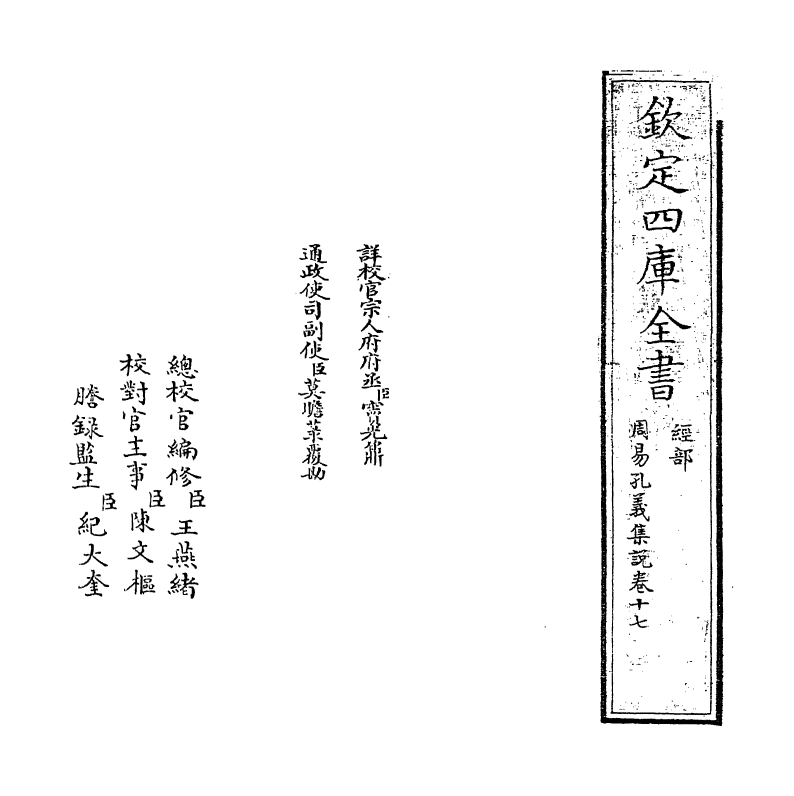 欽定四庫全書
經部
周易孔義集說卷十七
詳校官宗人府府丞臣竇光鼐
通政使司副使臣莫瞻菉覆勘
總校官編修臣王燕緒
校對官主事臣陳文樞
謄錄監生臣紀大奎